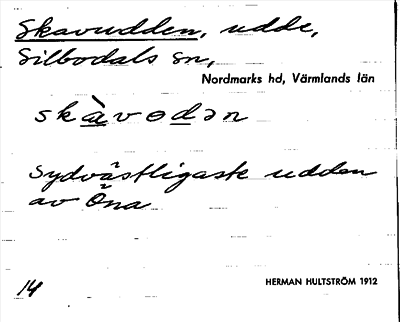 Skavudden, udde,
Silbodals sn,
Nordmarks hd, Värmlands län
skàvodən
Sydvästligaste udden
av Öna
14
HERMAN HULTSTRÖM 1912